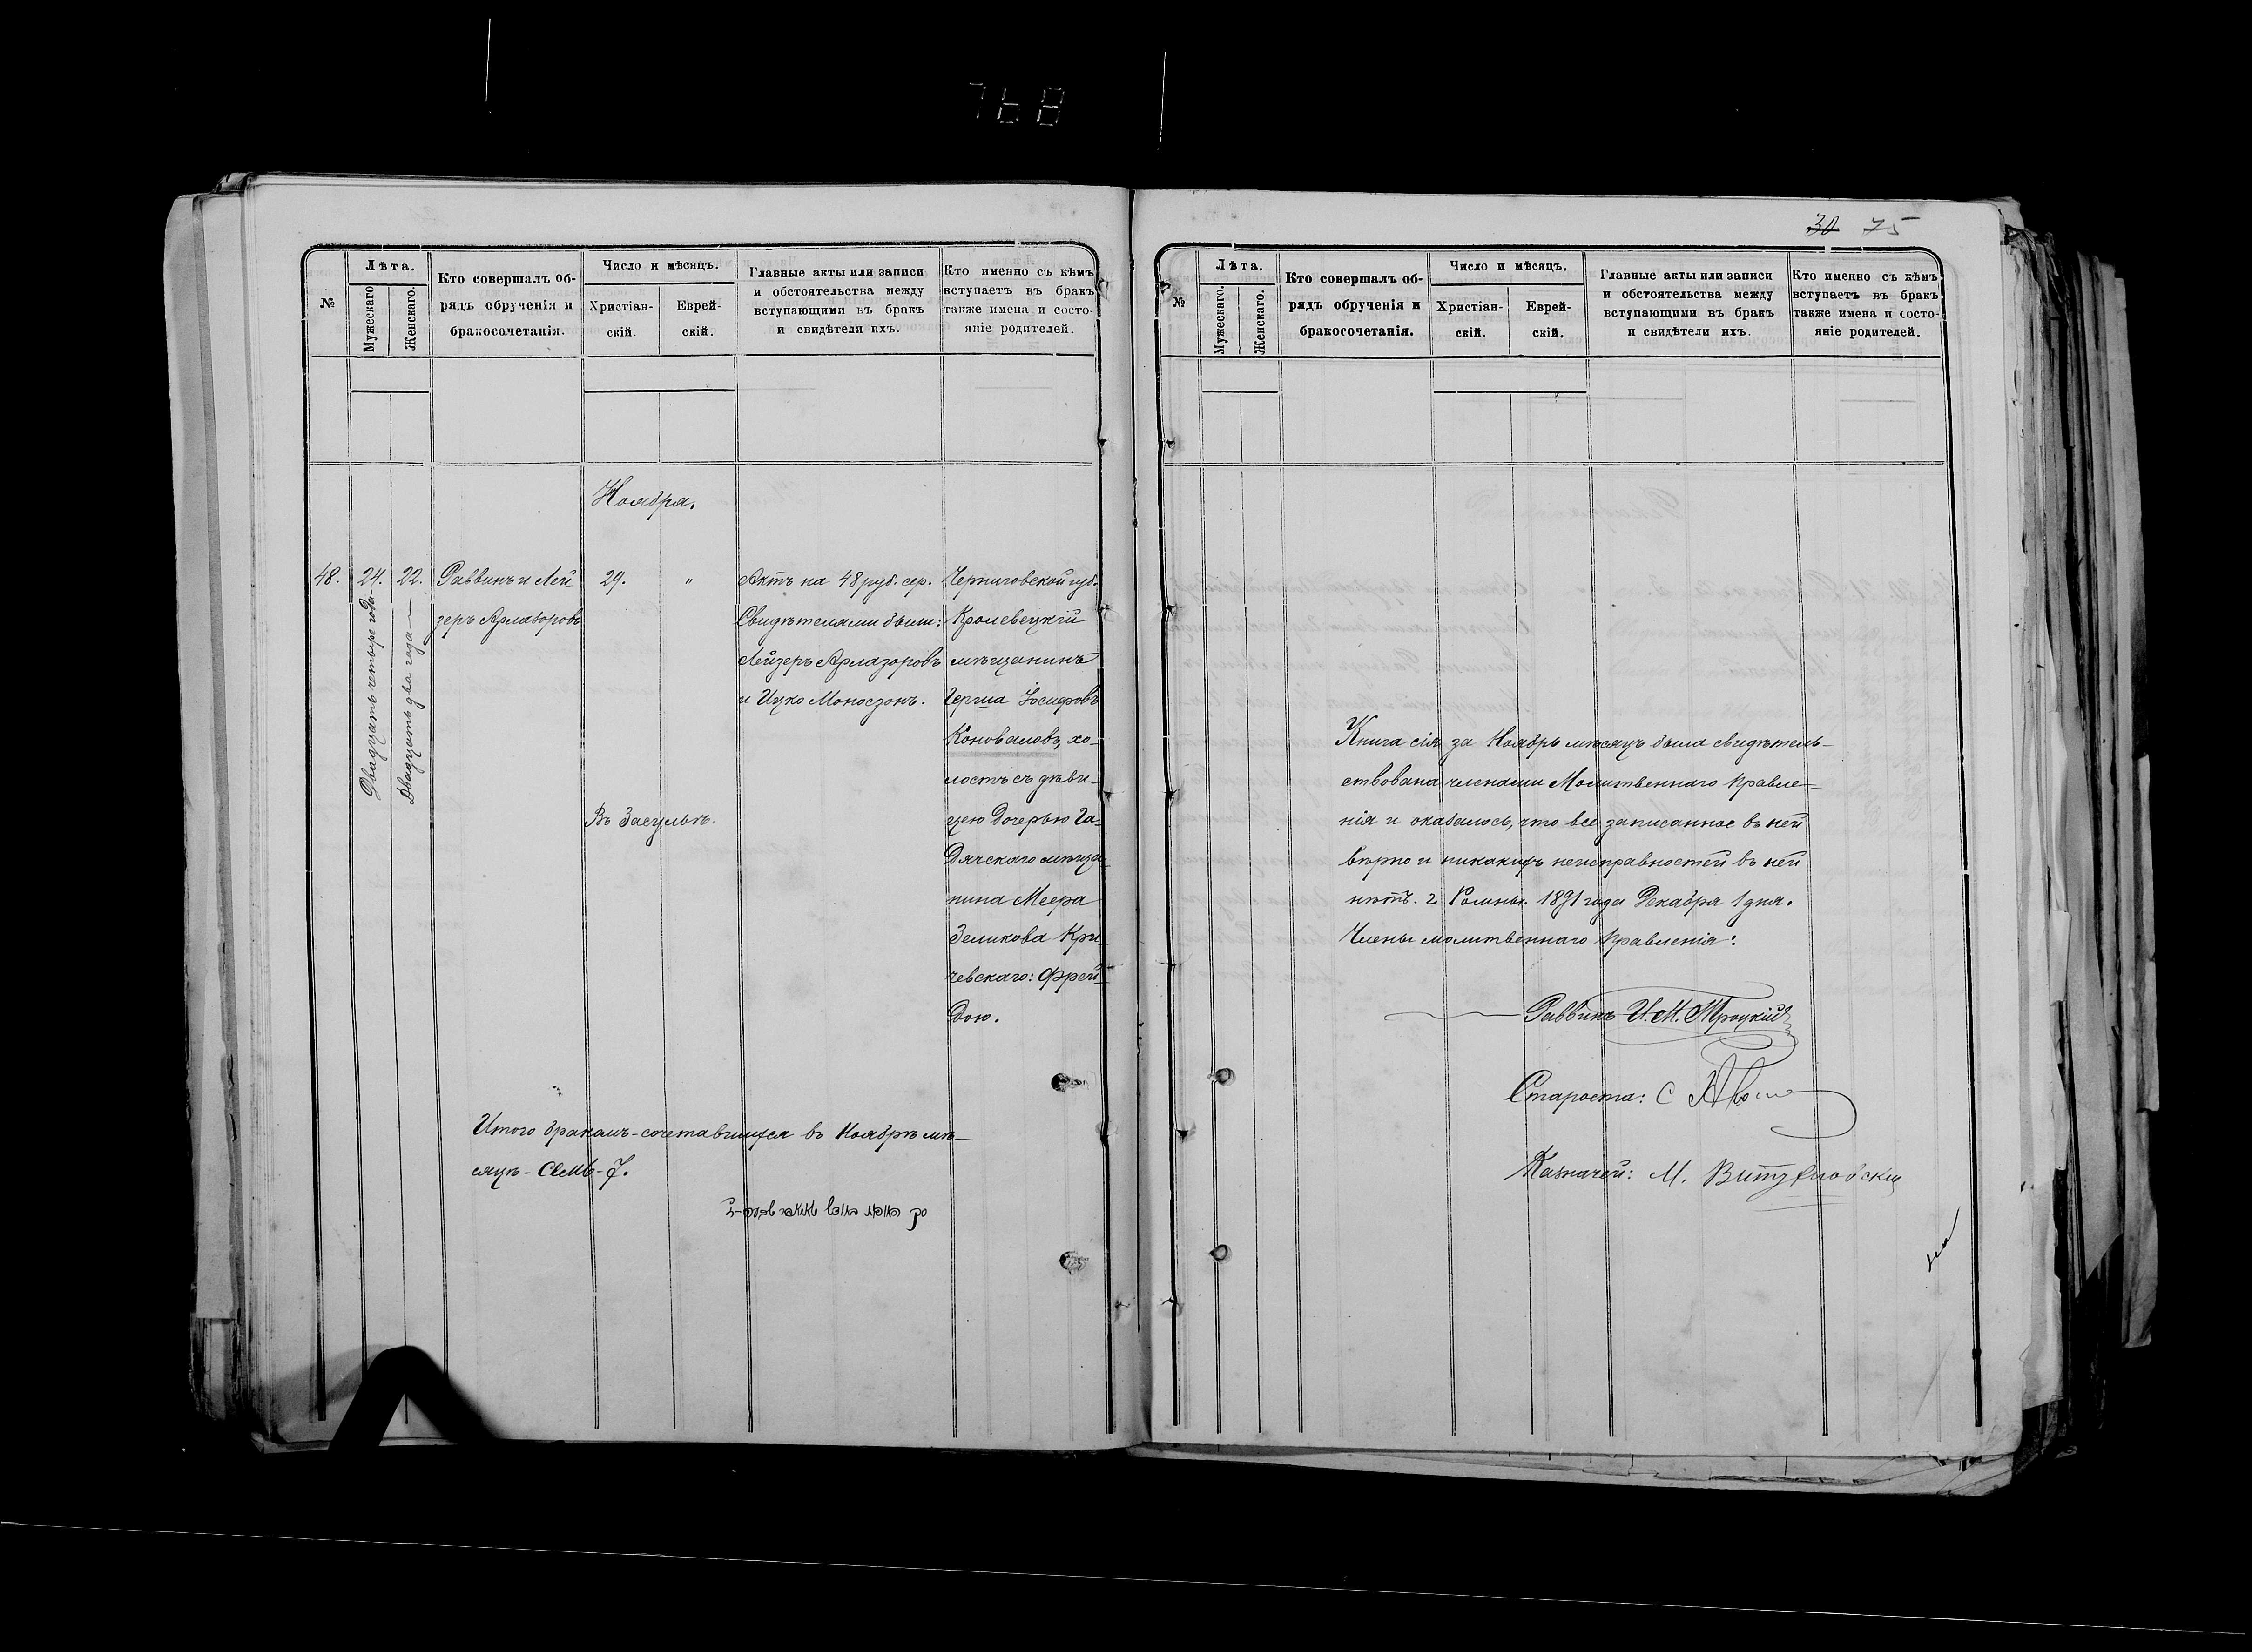 768
№
Лѣта.
Мужескаго
Женскаго.
Кто совершалъ об-
рядъ обрученія и
бракосочетанія.
Число и мѣсяцъ.
Христіан-
скій.
Еврей-
скій.
Главные акты или записи
и обстоятельства между
вступающими въ бракъ
и свидѣтели ихъ.
Кто именно съ кѣмъ
вступаетъ въ бракъ
также имена и состо-
яніе родителей.
Ноября.
48.
24.
Двадцать четыре года
22.
Двадцать два года
Раввинъ и Лей
зеръ Арлазоровъ
29.
"
Въ Засульѣ.
Актъ на 48 руб. сер.
Свидѣтелями были:
Лейзеръ Арлазоровъ
и Ицко Моносзонъ.
Черниговской губ.
Кролевецкій
мѣщанинъ
Герша Іосифовъ
Коноваловъ, хо-
лостъ съ дѣви-
цею Дочерью Га-
дячскаго мѣща-
нина Меера
Зеликова Кри-
чевскаго: Фрей-
дою.
Итого бракомъ-сочетавшихся въ Ноябрѣ мѣ-
сяцѣ - Семь - 7.
30 75
№
Лѣта.
Мужескаго.
Женскаго.
Кто совершалъ об-
рядъ обрученія и
бракосочетанія.
Число и мѣсяцъ.
Христіан-
скій.
Еврей-
скій.
Главные акты или записи
и обстоятельства между
вступающими въ бракъ
и свидѣтели ихъ.
Кто именно съ кѣмъ
вступаетъ въ бракъ
также имена и состо-
яніе родителей.
Книга сія за Ноябрь мѣсяцъ была свидѣтель-
ствована членами Молитвеннаго Правле-
нія и оказалось, что все записанное въ ней
вѣрно и никакихъ неисправностей въ ней
нѣтъ. г. Ромны. 1891 года Декабря 1 дня.
Члены молитвеннаго Правленія:
Раввинъ И. М. Троцкій
Староста: С
Казначей: М.